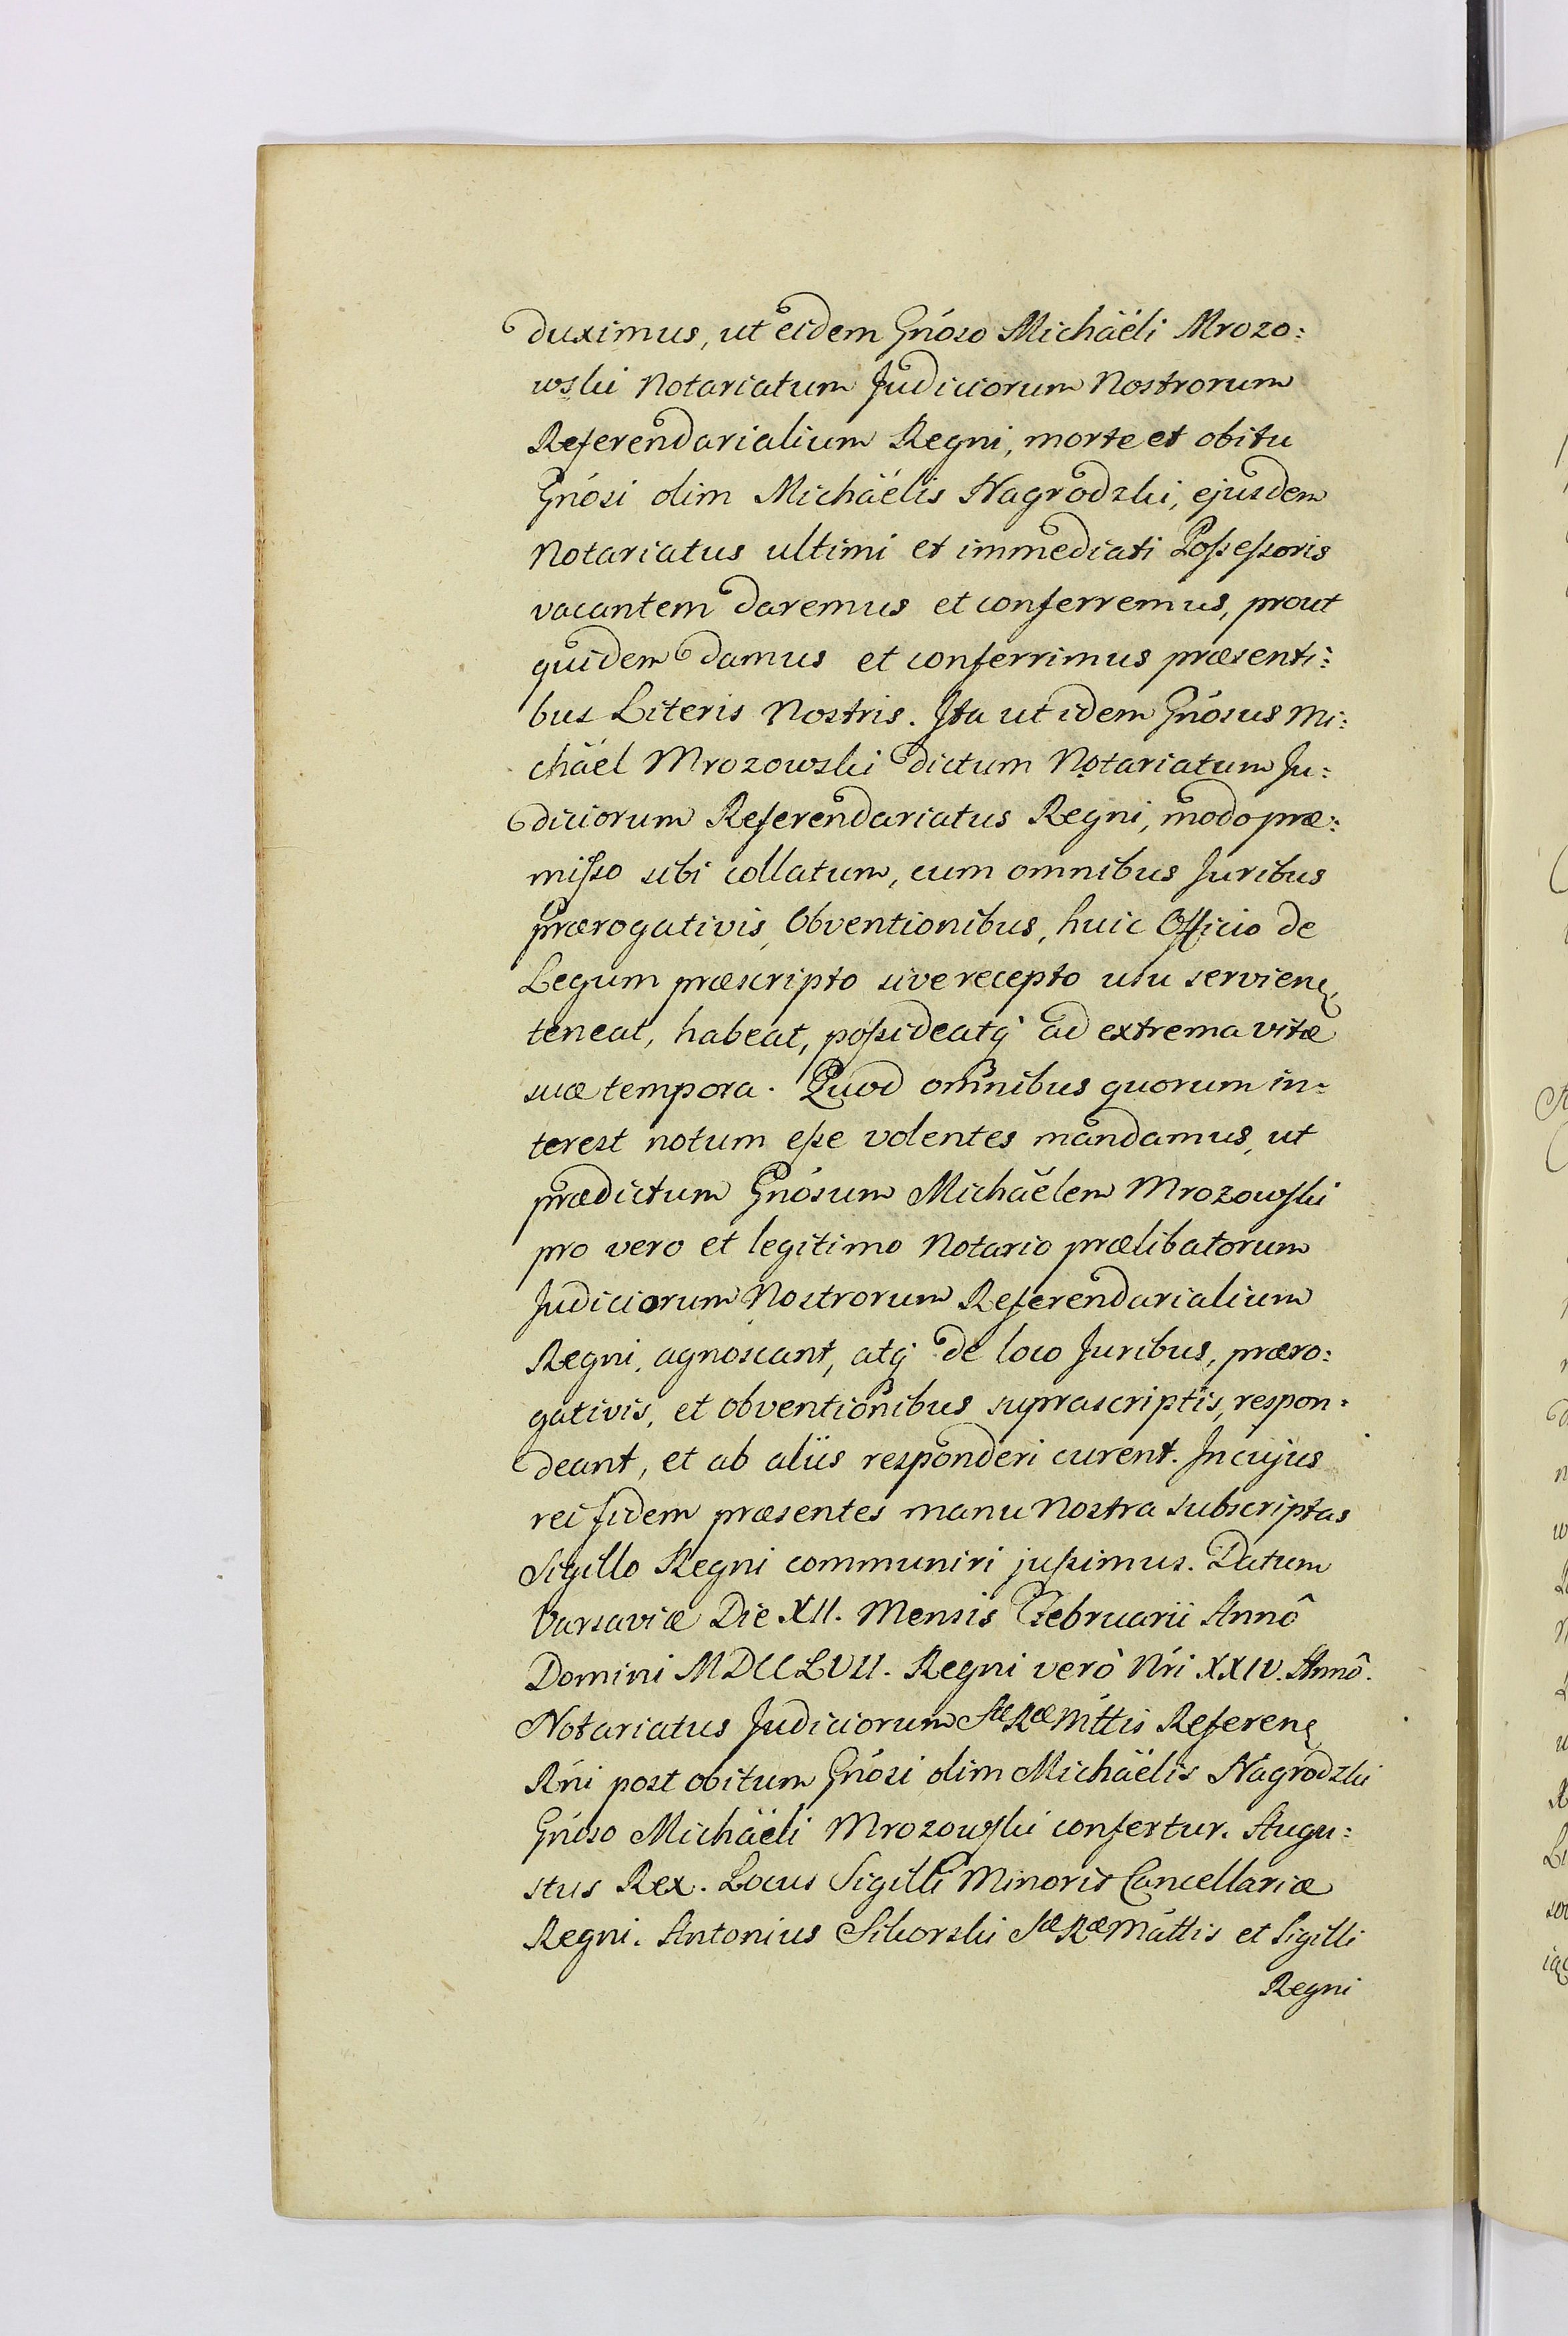 duximus, ut eidem Gnóso Michaëli Mrozo:
wski Notariatum Judiciorum Nostrorum
Referendarialium Regni, morte et obitu
Gnósi olim Michaëlis Nagrodzki, ejusdem
Notariatus ultimi et immediati Possessoris
vacantem daremus et conferremus, prout
quidem damus et conferrimus præsenti:
bus Literis Nostris. Ita ut idem Gnósus Mi:
chäel Mrozowski dictum Notariatum Ju:
diciorum Referendariatus Regni, modo præ:
misso sibi collatum, cum omnibus Juribus
prærogativis, Obventionibus, huic Officio de
Legum præscripto sive recepto usu servienę
teneat, habeat, possideatq̇ ad extrema vitæ
suæ tempora. Quod omnibus quorum in:
terest notum esse volentes mandamus, ut
prædictum Gnósum Michaëlem Mrozowski
pro vero et legitimo Notario prælibatorum
Judiciorum Nostrorum Referendarialium
Regni, agnoscant, atq̇ de loco Juribus, præro:
gativis, et obventionibus suprascriptis, respon:
deant, et ab aliis responderi curent. In cujus
rei fidem præsentes manu Nostra subscriptas
Sigillo Regni communiri jussimus. Datum
Varsaviæ Die XII. Mensis Februarii Annô
Domini MDCCLVII. Regni verò Nri XXIV. Annô.
Notariatus Judiciorum Sæ Ræ Mttis Referenę
Rńi post obitum Gnósi olim Michäelis Nagrodzki
Gnóso Michäeli Mrozowski confertur. Augu:
stus Rex. Locus Sigilli Minoris Cancellariæ
Regni. Antonius Sikorski Sæ Ræ Máttis et Sigilli
Regni